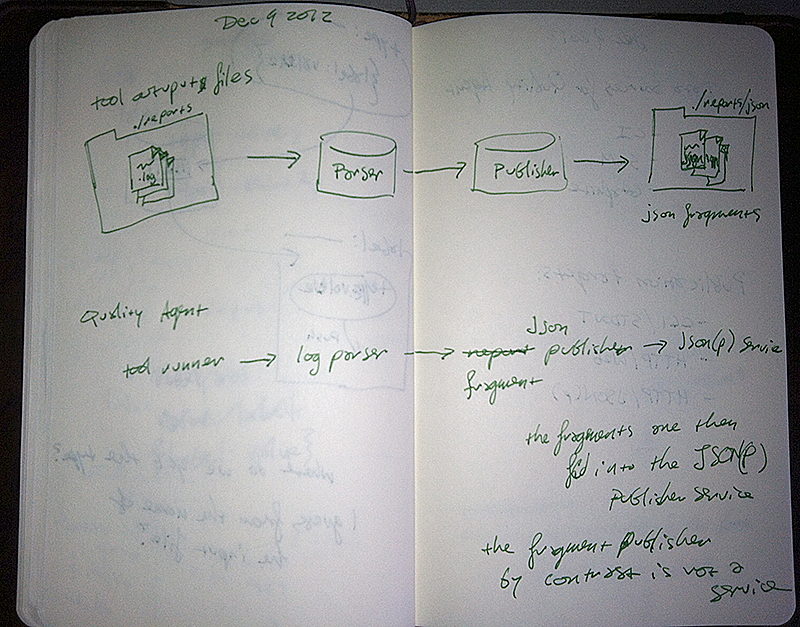 Dec 9 2012
tool outputs files
./reports
.log
Parser
Publisher
./reports/json
json
json fragments
Quality Agent
tool runner
log parser
report
Json
fragment
publisher
Json(p) service
the fragments are then
fed into the JSON(P)
Publisher service
the fragment publisher
by contrast is not a
service